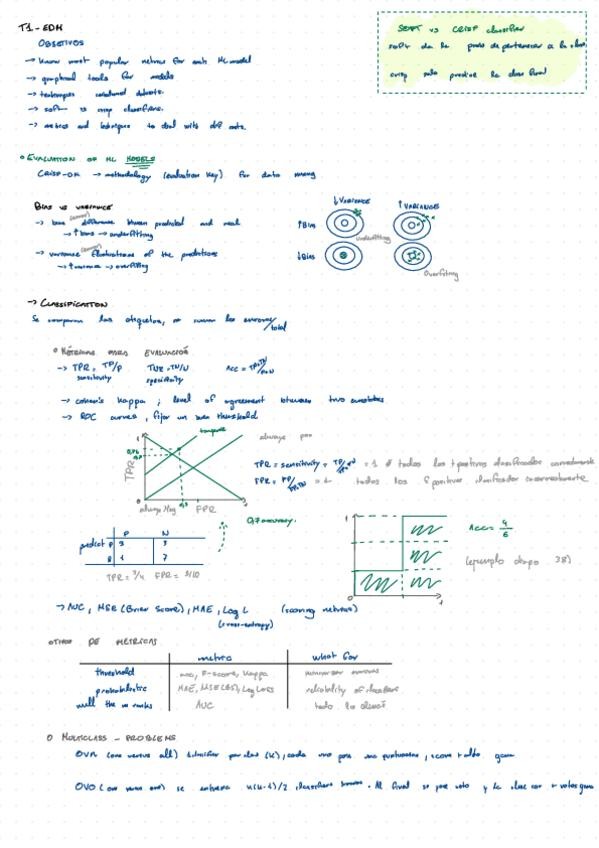 T1 - EDM
OBJETIVOS
→ Know most popular metrics for each ML model
→ graphical tools for models
→ techniques imbalanced datasets.
→ soft vs crisp classifiers.
→ metrics and techniques to deal with dif sets.
SOFT vs CRISP classifier
soft da la prob de pertenecer a la clase
crisp solo predice la clase final
EVALUATION OF ML MODELS
CRISP-DM → methodology (evaluation key) for data mining
BIAS vs VARIANCE
→ bias (error) difference between predicted and real
→ ↑ bias → underfitting
→ variance (error) fluctuations of the predictions
→ ↑ variance → overfitting
↓ VARIANCE ↑ VARIANCES
↑ Bias
Underfitting
↓ Bias
Overfitting
→ CLASSIFICATION
Se comparan las etiquetas, se suman los errores/total
MÉTRICAS PARA EVALUACIÓ
→ TPR = TP/P TNR = TN/N Acc = TP+TN/P+N
sensitivity specificity
→ Cohen's Kappa ; level of agreement between two
→ ROC curves, fijar un threshold
always pos
TPR = sensitivity = = 1 # todos los + positivos clasificados correctamente
FPR = = 1 todos los positives clasificados incorrectamente
TPR
always Neg FPR
0,7 accuracy.
P N
predict P 3 3
N 1 7
TPR = 3/4 FPR = 3/10
Acc = 4/6
(ejemplo diapo 38)
→ AUC, MSE (Brier Score), MAE, Log L (scoring metrics)
(cross-entropy)
OTROS DE MÉTRICAS
metric what for
threshold acc, F-score, Kappa minimizar errores
probabilistic MAE, MSE (BS), Log Loss reliability of classifiers
well the ranks AUC
MULTICLASS - PROBLEMS
OVA (one versus all) clasificador por clase (K), cada uno pone una puntuación, score + alto gana
OVO (one versus one) se entrena K(K-1)/2 classifiers binarios. Al final se por voto y la clase con + votos gana